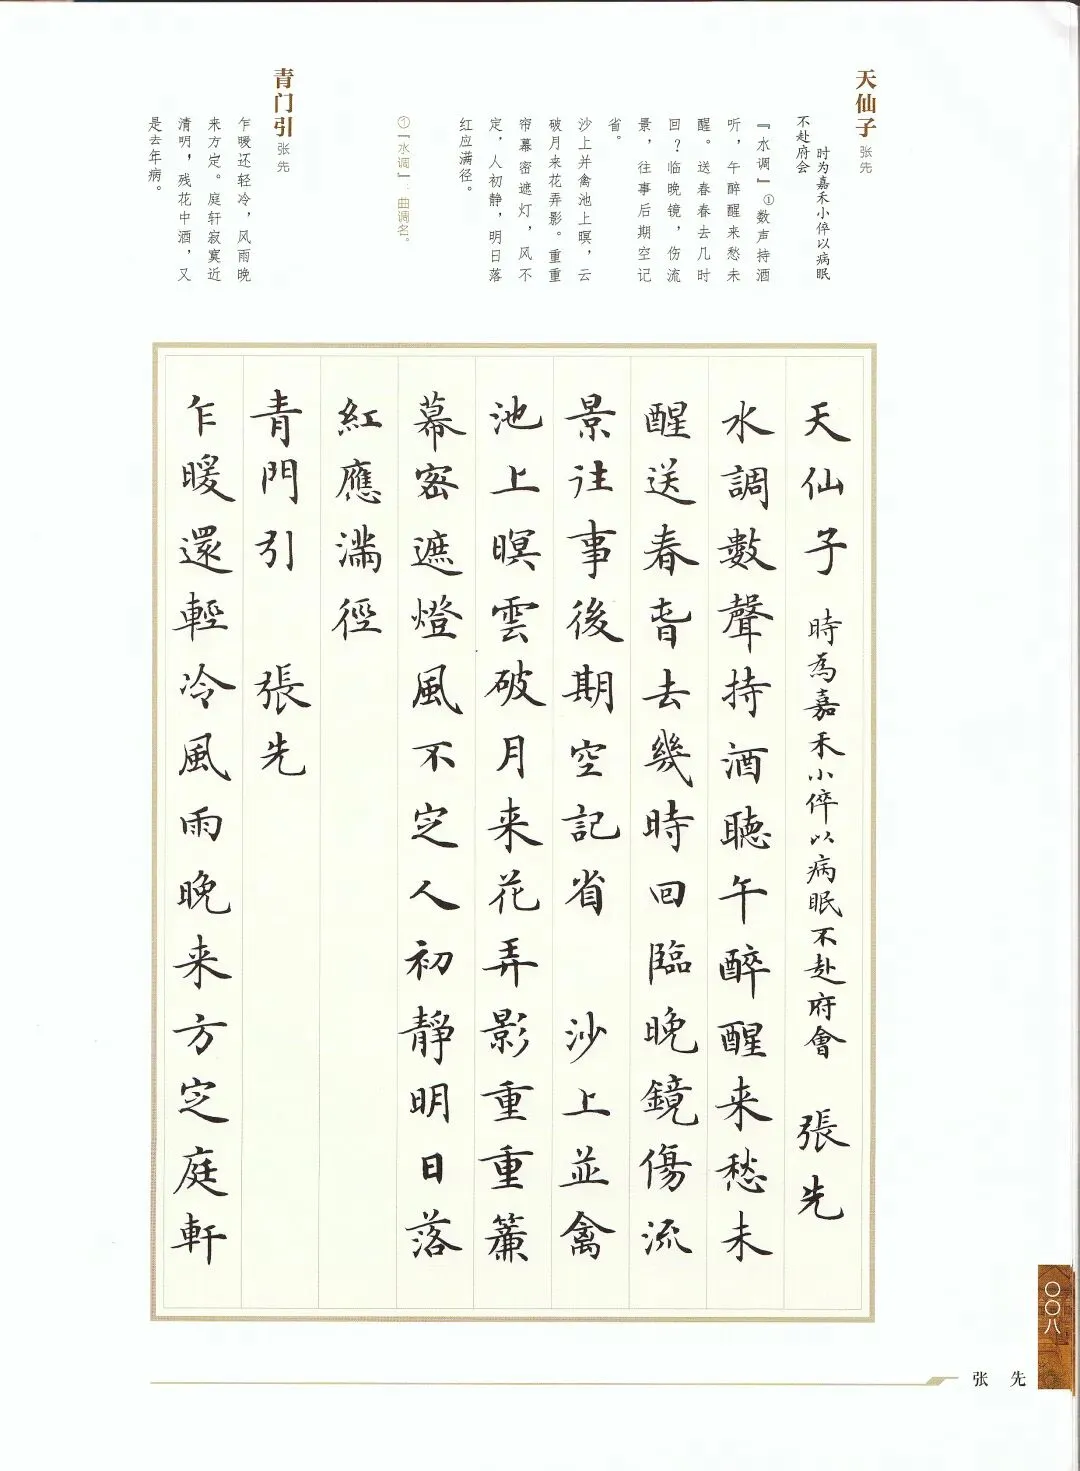 天仙子 张先
时为嘉禾小倅以病眠
不赴府会
『水调』①数声持酒
听，午醉醒来愁未
醒。送春春去几时
回？临晚镜，伤流
景，往事后期空记
省。
沙上并禽池上暝，云
破月来花弄影。重重
帘幕密遮灯，风不
定，人初静，明日落
红应满径。
①『水调』：曲调名。
青门引 张先
乍暖还轻冷，风雨晚
来方定。庭轩寂寞近
清明，残花中酒，又
是去年病。
天仙子 時為嘉禾小倅以病眠不赴府會 張先
水調數聲持酒聽午醉醒来愁未
醒送春春去幾時回臨晚鏡傷流
景往事後期空記省 沙上並禽
池上暝雲破月来花弄影重重簾
幕密遮燈風不定人初靜明日落
紅應滿徑
青門引 張先
乍暖還輕冷風雨晚来方定庭軒
〇〇八
张先